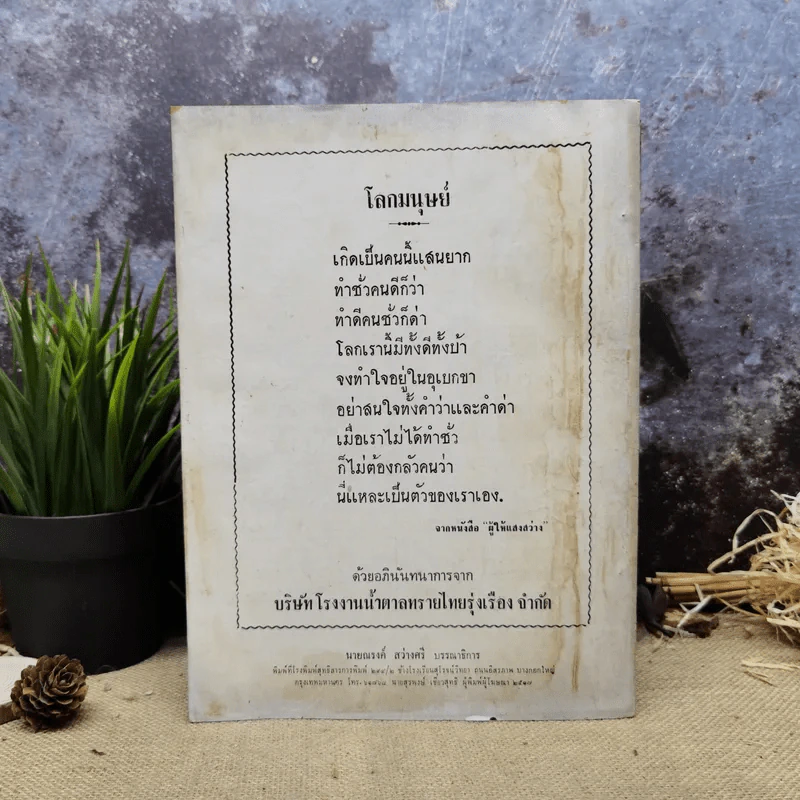 โลกมนุษย์
เกิดเป็นคนนี้แสนยาก
ทำชั่วคนดีก็ว่า
ทำดีคนชั่วก็ด่า
โลกเรานี้มีทั้งดีทั้งบ้า
จงทำใจอยู่ในอุเบกขา
อย่าสนใจทั้งคำว่าและคำด่า
เมื่อเราไม่ได้ทำชั่ว
ก็ไม่ต้องกลัวคนว่า
นี่แหละเป็นตัวของเราเอง.
จากหนังสือ "ผู้ให้แสงสว่าง"
ด้วยอภินันทนาการจาก
บริษัท โรงงานน้ำตาลทรายไทยรุ่งเรือง จำกัด
นายณรงค์ สว่างศรี บรรณาธิการ
พิมพ์ที่โรงพิมพ์สุทธิสารการพิมพ์ ข้างโรงเรียนสุโรจน์วิทยา ถนนอิสรภาพ บางกอกใหญ่
กรุงเทพมหานคร โทร. นายสุรพงษ์ เชี่ยวสุทธิ ผู้พิมพ์ผู้โฆษณา ๒๕๑๗